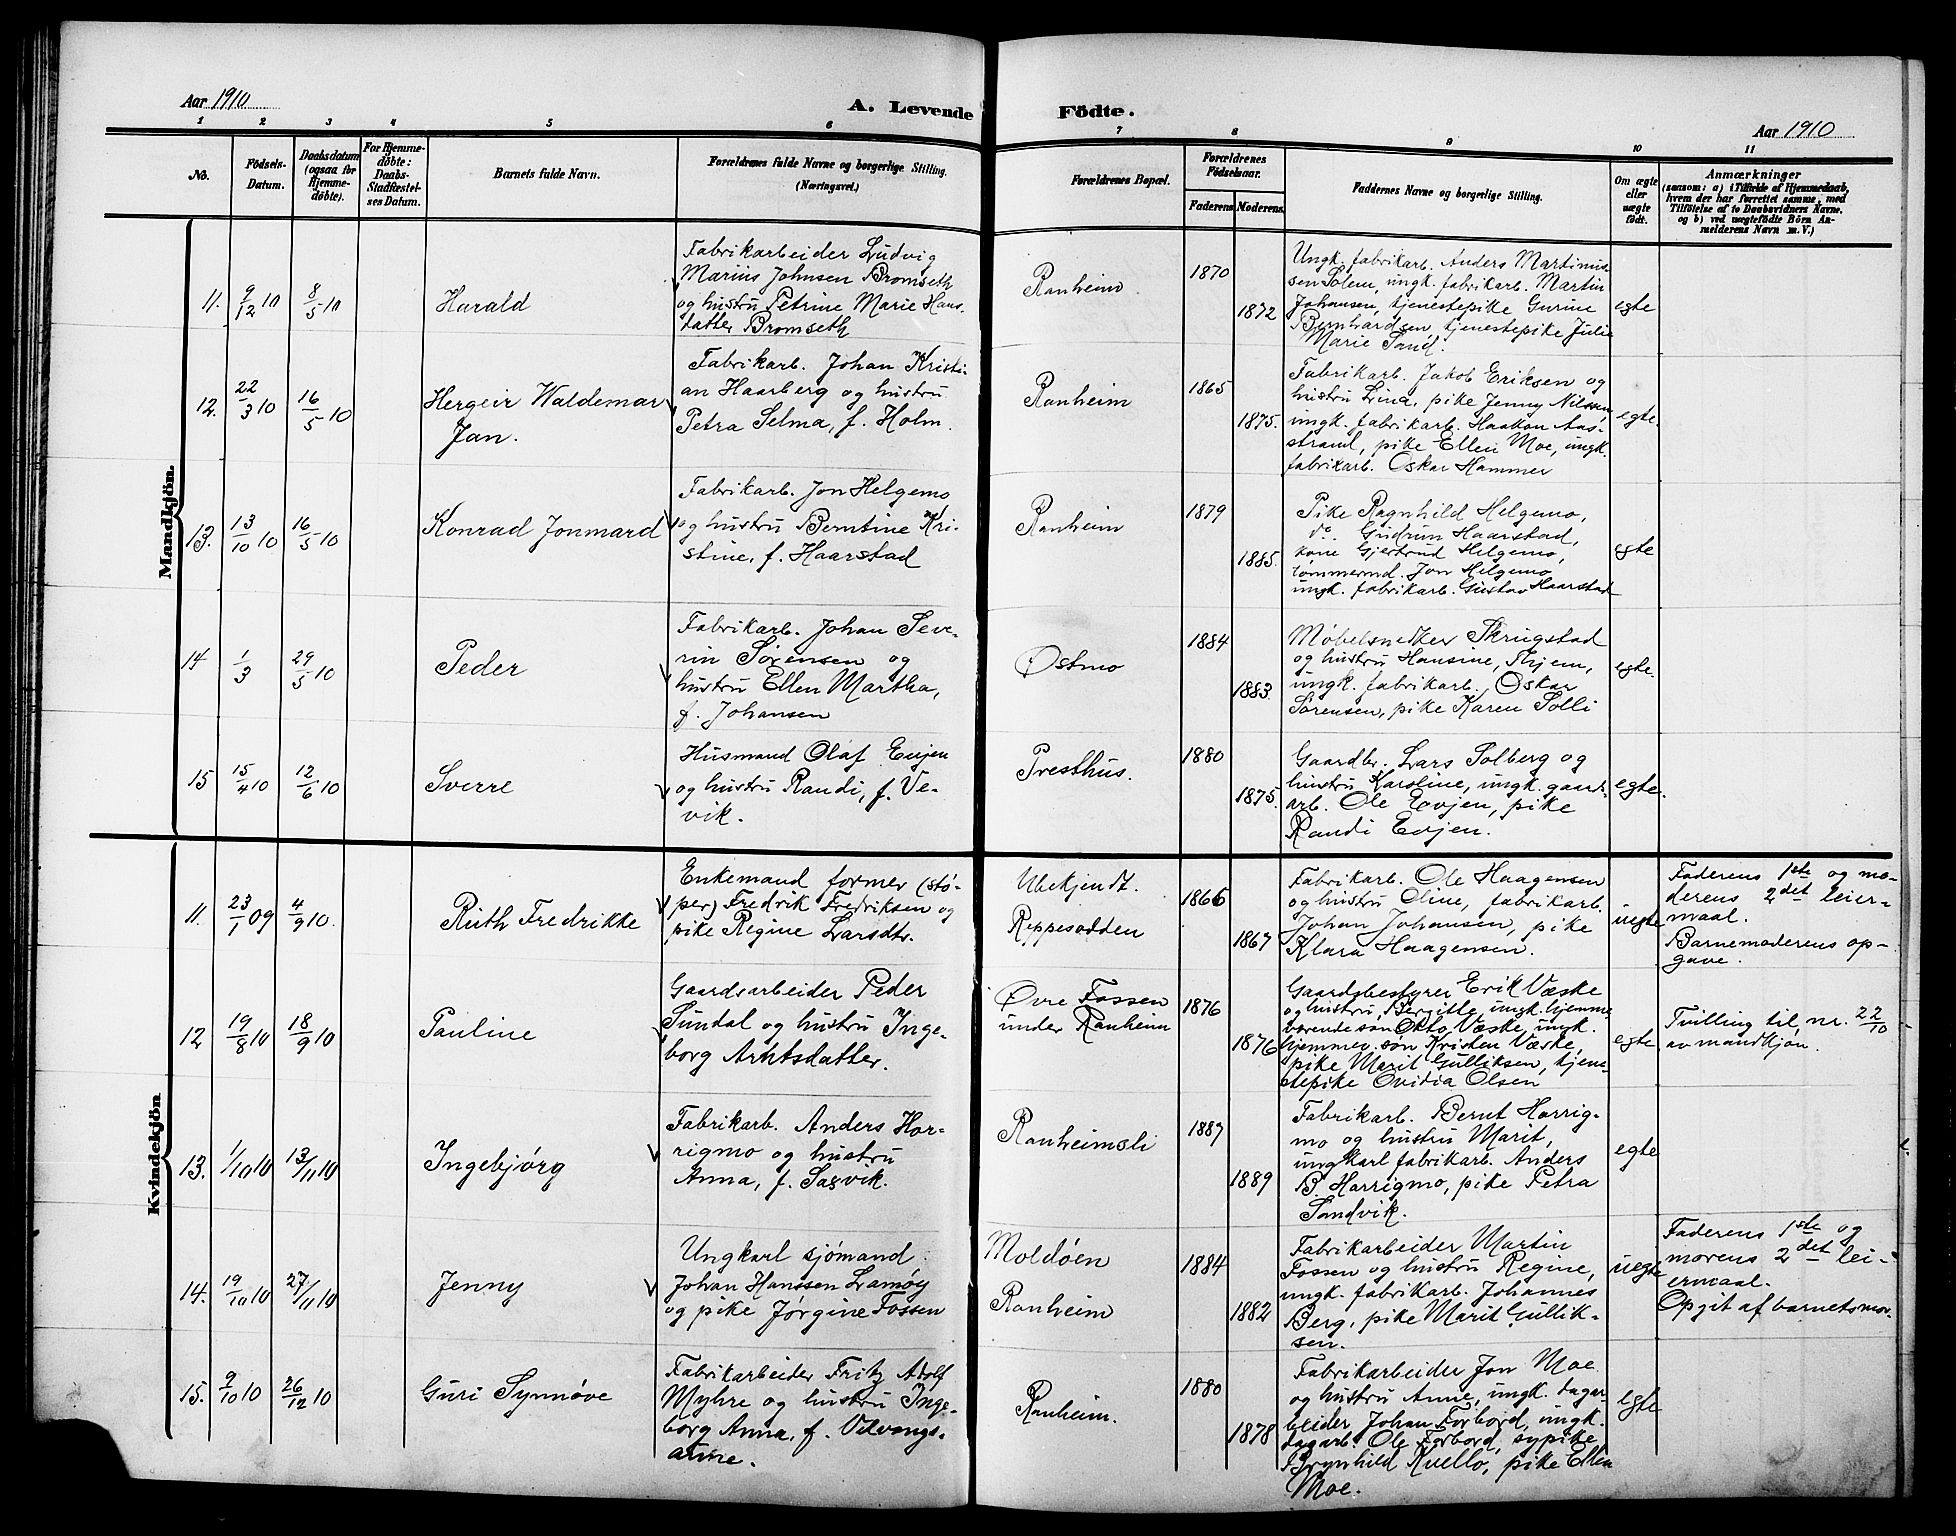 Aar 1910
A. Levende Födte.
Aar 1910
1 2 3 4 5 6 7 8 9 10 11
No.
Födsels-Datum.
Daabsdatum (ogsaa for Hjemmedøbte).
For Hjemmedøbte: Daabs-Stadfæstelses Datum.
Barnets fulde Navn.
Forældrenes fulde Navne og borgerlige Stilling.
(Næringsvei.)
Forældrenes Bopæl.
Forældrenes Födselsaar.
Faderens Moderens
Faddernes Navne og borgerlige Stilling.
Om ægte eller uægte født.
Anmærkninger
(saasom: a) i Tilfælde af Hjemmedaab,
hvem der har forrettet samme, med
Tilföielse af to Daabsvidners Navne,
og b) ved uægtefödte Börn Anmelderens Navn m. V.)
Mandkjön.
11. 9/12 10 8/5 10 Harald
Fabrikarbeider Ludvig
Marius Johnsen Bromseth
og hustru Petrine Marie Hans-
datter Bromseth
Ranheim.
1870
1872
Ungk. fabrikarb. Anders Martinus-
sen Solem, ungk. fabrikarb. Martin
Johansen, tjenestepike Gurine
Bernhardsen, tjenestepike Julie
Marie Sand.
egte
12. 22/3 10 16/5 10 Hergeir Waldemar
Jan.
Fabrikarb. Johan Kristi-
an Haarberg og hustru
Petra Selma, f. Holm.
Ranheim
1865
1875.
Fabrikarb. Jakob Eriksen og
hustru Lina, pike Jenny Nilssen,
ungk. fabrikarb. Haakon Aas-
strand, pike Ellen Moe, ungk.
fabrikarb. Oskar Hammer
egte.
13. 13/10 10 16/5 10 Konrad Jonmard
Fabrikarb. Jon Helgemo
og hustru Berntine Kri-
stine, f. Haarstad
Ranheim
1879
1885.
Pike Ragnhild Helgemo,
do. Gudrun Haarstad,
kone Gjertrud Helgemo,
tømmermd. Jon Helgemo,
ungk. fabrikarb. Gustav Haarstad
egte
14 1/3 29/5 10 Peder
Fabrikarb. Johan Seve-
rin Sørensen og
hustru Ellen Martha,
f. Johansen
Østmo
1884
1883.
Møbelsnedker Skrugstad
og hustru Hansine, Thjem,
ungk. fabrikarb. Oskar
Sørensen, pike Karen Solli
egte.
15 15/4 10 12/6 10 Sverre
Husmand Olaf Evjen
og hustru Randi, f. Ve-
vik.
Presthus.
1880
1875.
Gaardbr. Lars Solberg og
hustru Karoline, ungk. gaards-
arb. Ole Evjen, pike
Randi Evjen.
egte.
Kvindekjön
11. 23/1 09 4/9 10. Ruth Fredrikke
Enkemand former (stø-
per) Fredrik Fredriksen og
pike Regine Larsdtr.
Ubekjendt.
Reppesodden
1866
1867
Fabrikarb. Ole Haagensen
og hustru Oline, fabrikarb.
Johan Johansen, pike
Klara Haagensen.
uegte
Faderens 1ste og mo-
derens 2det leier-
maal.
Barnemoderens op-
gave.
12 19/8 10 18/9 10 Pauline
Gaardsarbeider Peder
Sundal og hustru Inge-
borg Arntsdatter.
Øvre Fossen
under Ranheim
1876
1876
Gaardsbestyrer Erik Væske
og hustru Bergitte, ungk. hjemme-
værende søn Otto Væske, ungk.
hjemmev. søn Kristen Væske,
pike Marit Gulliksen, tjene-
stepike Ovidia Olsen
egte
Tvilling til nr. 22/10
av mandkjøn.
13. 1/10 10 13/11 10 Ingebjørg
Fabrikarb. Anders Hor-
rigmo og hustru
Anna, f. Sasvik.
Ranheimsli
1887
1889
Fabrikarb. Bernt Horrig-
mo og hustru Marit,
ungkarl fabrikarb. Anders
B. Horrigmo, pike Petra
Sandvik.
egte
14. 19/10 10 27/11 10 Jenny
Ungkarl sjømand
Johan Hanssen Lamøy
og pike Jørgine Fossen
Moldøen
Ranheim
1884
1882
Fabrikarbeider Martin
Fossen og hustru Regine,
ungk. fabrikarb. Johannes
Berg, pike Marit Gullik-
sen.
uegte
Faderens 1ste og
morens 2det lei-
ermaal.
Opgit af barnets mor.
15. 9/10 10 26/12 10 Guri Synnøve
Fabrikarbeider Fritz Adolf
Myhre og hustru Inge-
borg Anna, f. Velvangs-
anne.
Ranheim.
1880
1878
Fabrikarbeider Jon Moe
og hustru Anne, ungk. dagar-
beider Johan Forbord, ungk.
dagarb. Ole Forbord, sypike
Brynhild Kvello, pike Ellen
Moe.
egte